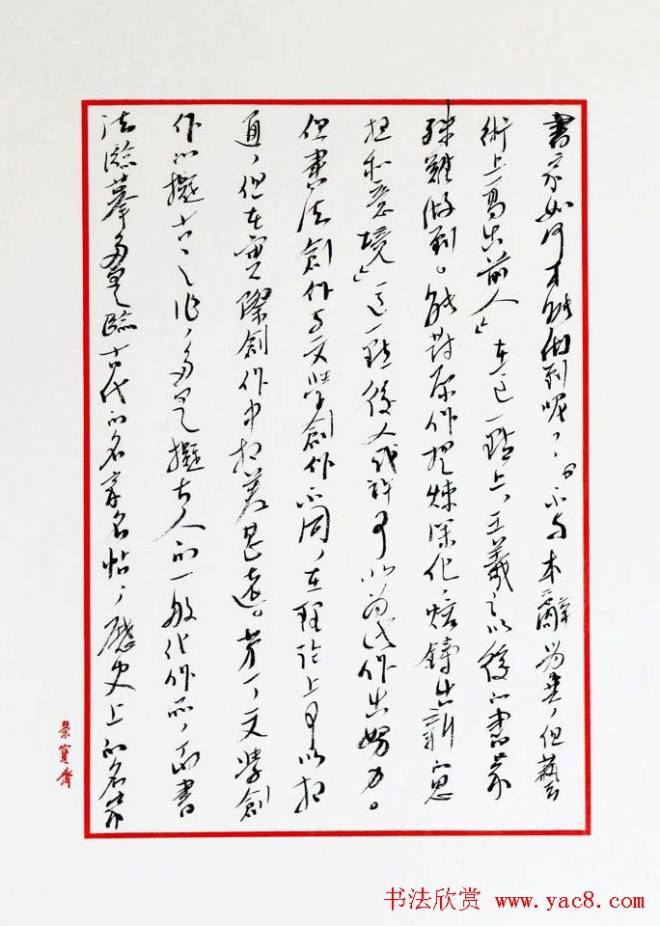 書家如何才能做到呢？“不與本辭為異，但藝
術上高出前人”在這一點上，王羲之以後的書家
殊難做到。能對原作提煉深化，熔鑄出新思
想和意境”這一點後人或許可以為此作出努力。
但書法創作與文學創作不同，在理論上可以相
通，但在實際創作中相差甚遠。第一，文學創
作的擬古之作，多是擬古人的一般化作品，而書
法臨摹多是臨古代的名家名帖，歷史上的名家
榮寶齋
书法欣赏 www.yac8.com